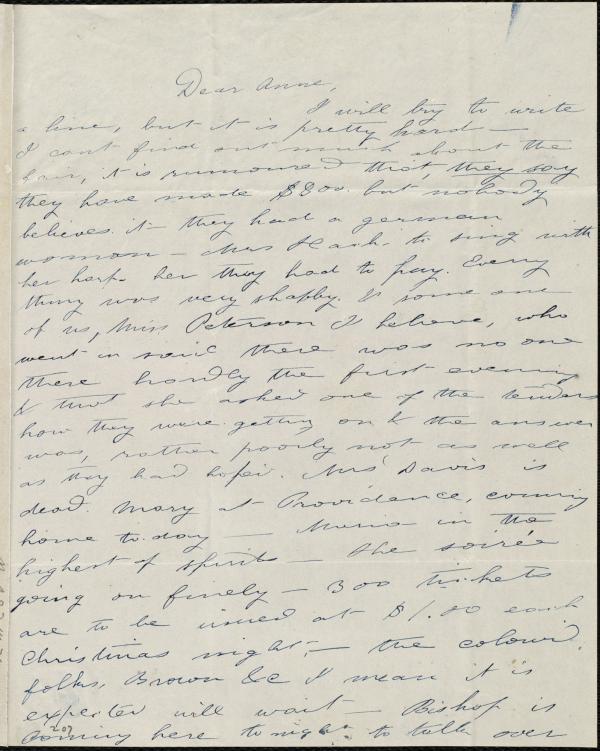 Dear Anne,
I will try to write
a line, but it is pretty hard —
I cant find out much about the
fair, it is rumoured that, they say
they have made $800. but nobody
believes it — they had a german
woman — Mrs to sing with
her harp. her they had to pay. Every
thing was very shabby. & some one
of us, Miss Peterson I believe, who
went in said there was no one
there hardly the first evening
& that she asked one of the tenders
how they were getting on & the answer
was, rather poorly not as well
as they had hoped. Mrs Davis is
dead. Mary at Providence, coming
home to-day — Maria in the
highest of spirits — the soirée
going on finely — 300 tickets
are to be issued at $1.00 each
Christmas night, — the colourd.
folks, Brown &c I mean it is
expected will wait — Bishop is
coming here to night to talk over
207